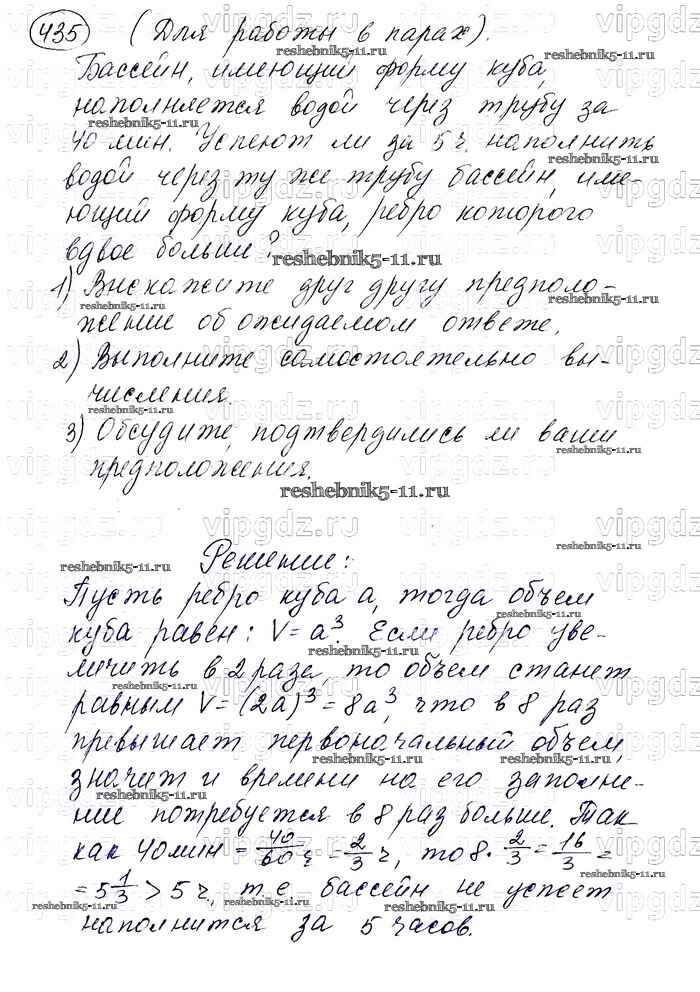 435 (Для работы в парах).
Бассейн, имеющий форму куба,
наполняется водой через трубу за
40 мин. Успеют ли за 5 ч. наполнить
водой через ту же трубу бассейн, име-
ющий форму куба, ребро которого
вдвое больше?
1) Выскажите друг другу предполо-
жение об ожидаемом ответе.
2) Выполните самостоятельно вы-
числения.
3) Обсудите, подтвердились ли ваши
предположения.
reshebnik5-11.ru
Решение:
Пусть ребро куба a, тогда объем
куба равен: V = a³. Если ребро уве-
личить в 2 раза, то объем станет
равным V = (2a)³ = 8a³, что в 8 раз
превышает первоначальный объем,
значит и времени на его заполне-
ние потребуется в 8 раз больше. Так
как 40 мин = 40/60 ч = 2/3 ч, то 8 · 2/3 = 16/3 =
= 5 1/3 > 5 ч., т.е. бассейн не успеет
наполнится за 5 часов.